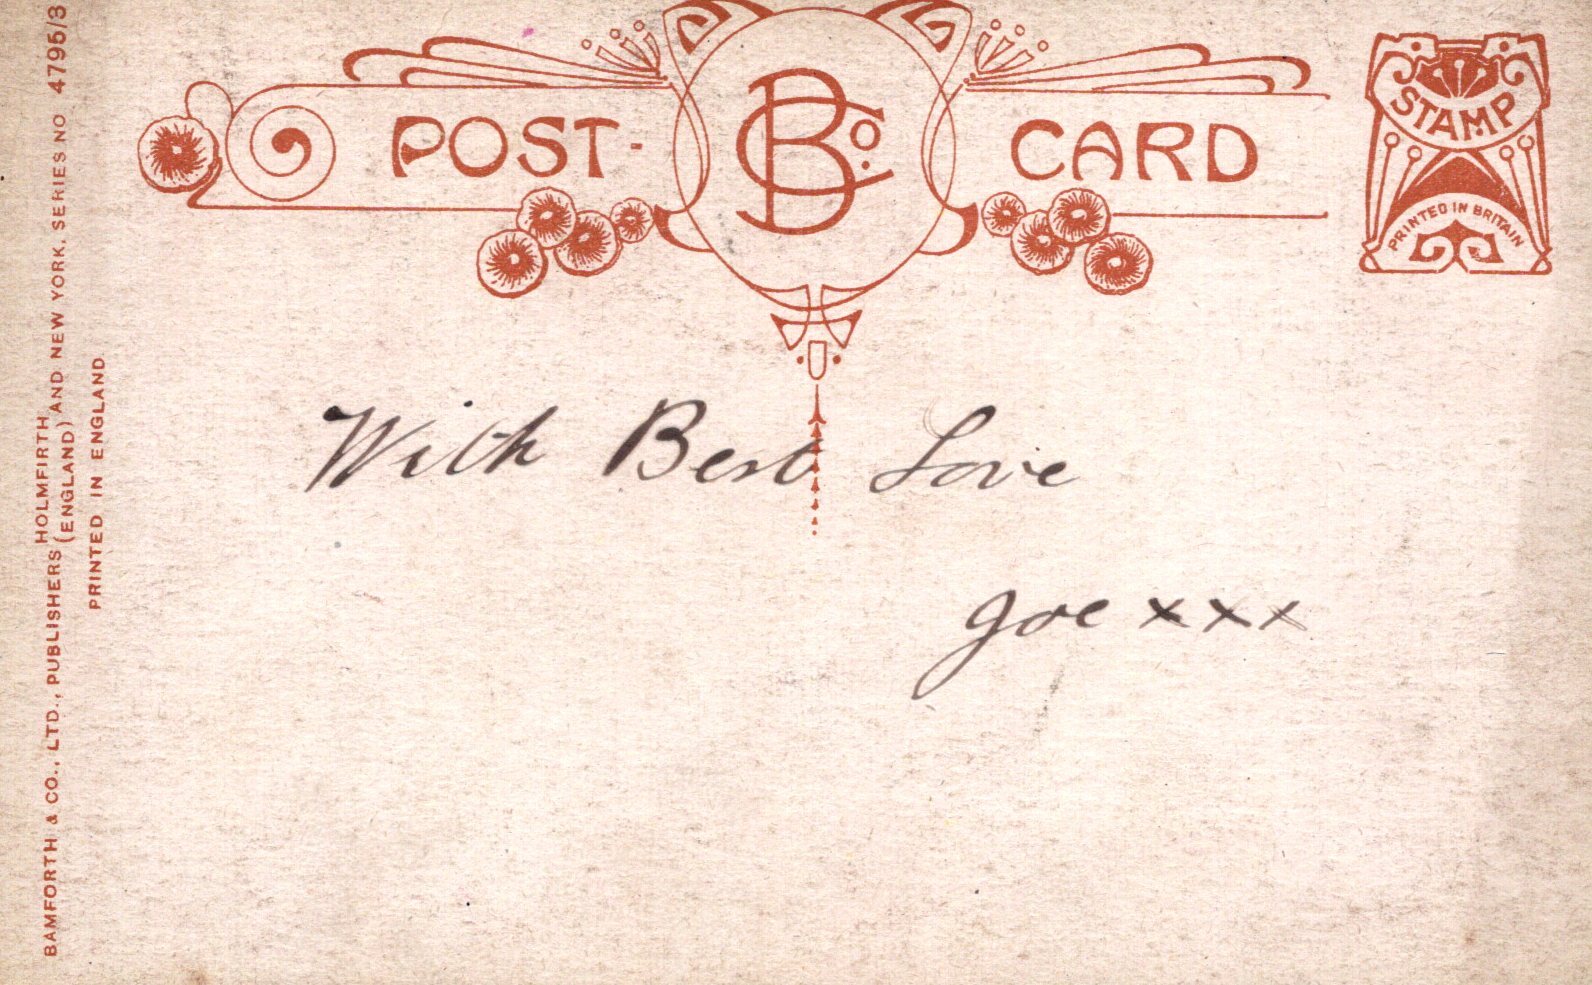 POST-
BCo.
CARD
STAMP
PRINTED IN BRITAIN
With Best Love
Joe xxx
BAMFORTH & CO., LTD., PUBLISHERS HOLMFIRTH (ENGLAND) AND NEW YORK. SERIES NO 4795/3
PRINTED IN ENGLAND